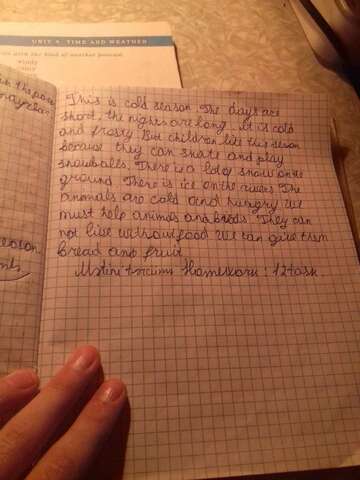 UNIT 4 TIME AND WEATHER
with the kind of weather
windy
This is cold season. The days are
short, the nights are long, it is cold
and frosty. But children like this season
because they can skate and play
snowballs. There is a lot of snow on the
ground. There is ice on the rivers. The
animals are cold and hungry. We
must help animals and birds. They can
not live without food. We can give them
bread and fruit.
Homework: 12 task.